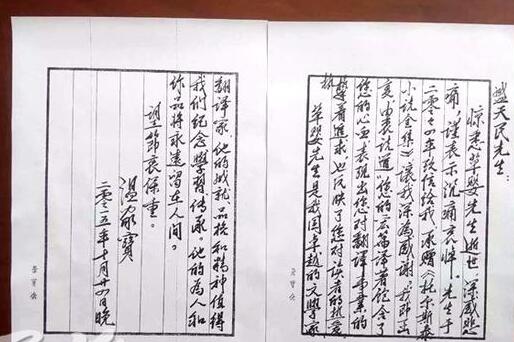 盛天民先生：
惊悉草婴先生逝世，深感悲
痛，谨表示沉痛哀悼。先生于
二零一四年致信给我，承赠《托尔斯泰
小说全集》，让我深为感谢。我
由衷 您的宏篇译著饱含了
您的心血表现出您对翻译事业的
执
着追求，也反映了您对读者的热爱
草婴先生是我国卓越的文学家
翻译家，他的成就、品格和精神值得
我们纪念学习传承。他的为人和
作品将永远留在人间。
望节哀保重。
温家宝
二零一五年十月廿四日晚
荣宝斋
荣宝斋